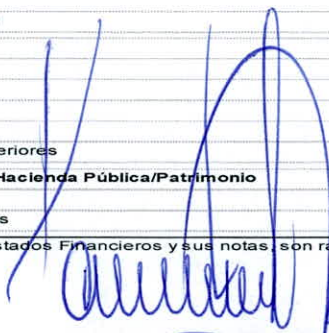 eriores
Hacienda Pública/Patrimonio
s
stados Financieros y sus notas, son ra